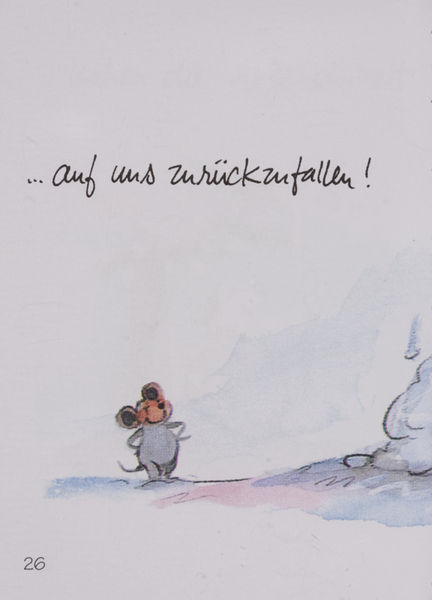 ... auf uns zurückzufallen!
26